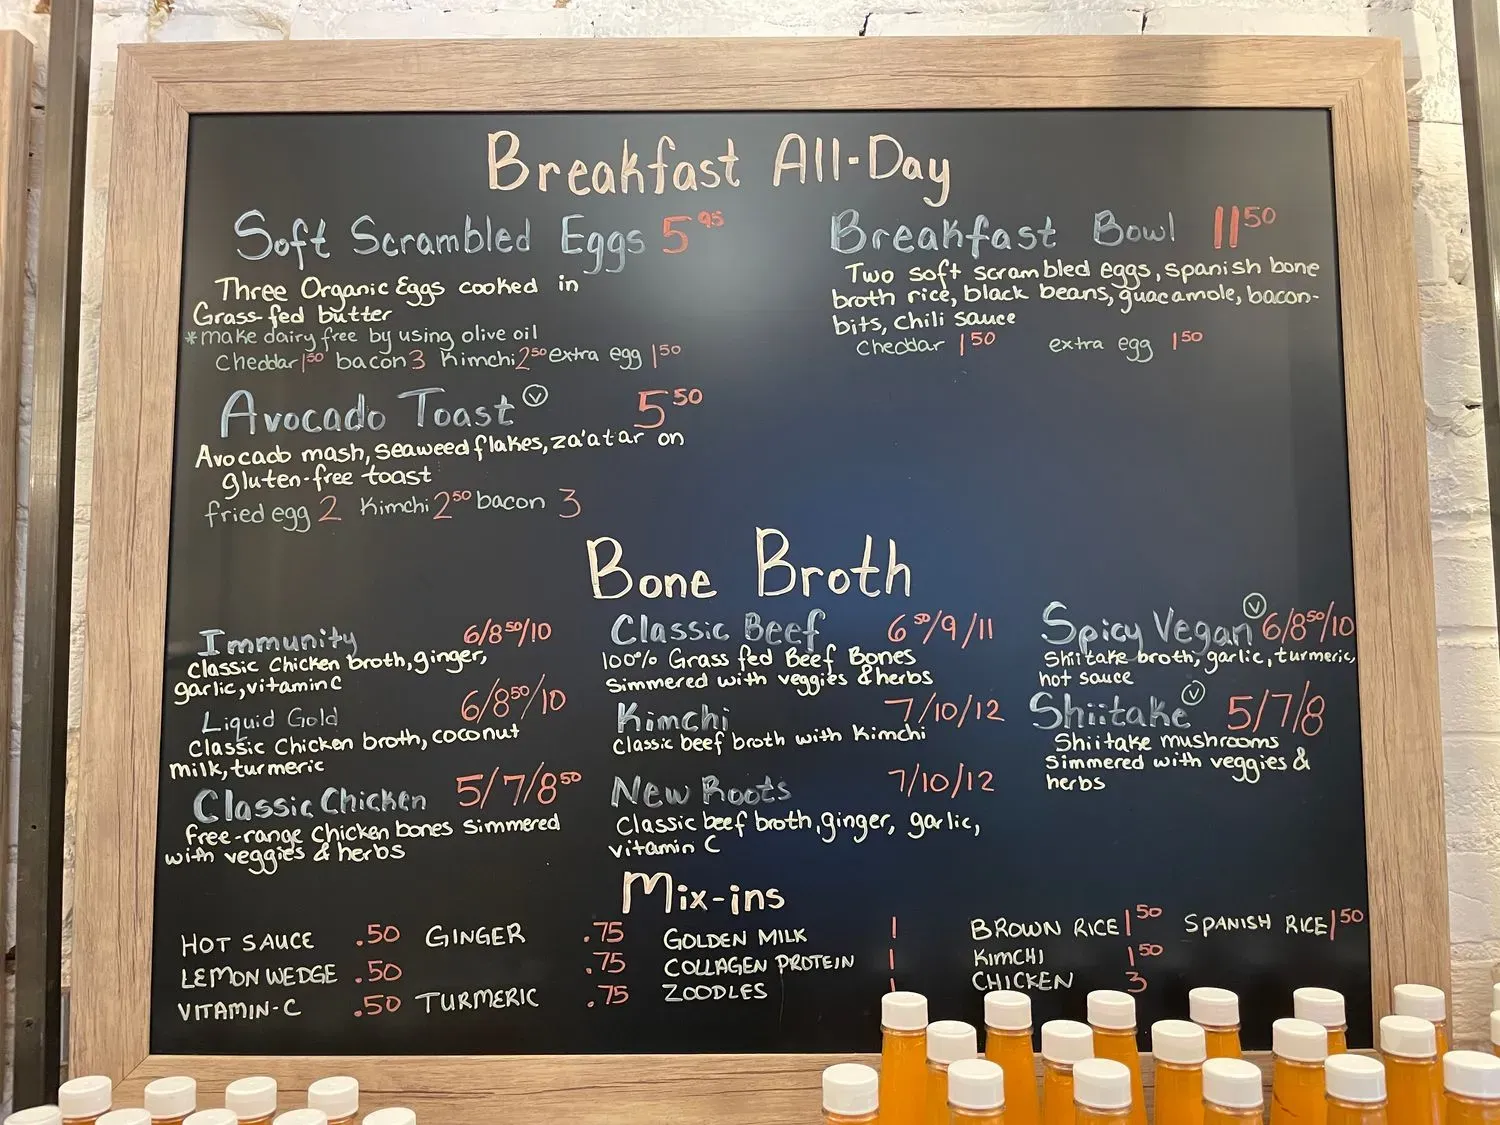 Breakfast All-Day
Soft Scrambled Eggs 5 95
Three Organic Eggs cooked in
Grass-fed butter
*make dairy free by using olive oil
Cheddar 1 50 bacon 3 Kimchi 2 50 extra egg 1 50
Avocado Toast V 5 50
Avocado mash, seaweed flakes, za'atar on
gluten-free toast
fried egg 2 Kimchi 2 50 bacon 3
Breakfast Bowl 11 50
Two soft scrambled eggs, spanish bone
broth rice, black beans, guacamole, bacon-
bits, chili sauce
Cheddar 1 50 extra egg 1 50
Bone Broth
Immunity 6/8 50/10
Classic Chicken broth, ginger,
garlic, vitamin C
Liquid Gold 6/8 50/10
Classic Chicken broth, coconut
milk, turmeric
Classic Chicken 5/7/8 50
free-range chicken bones simmered
with veggies & herbs
Classic Beef 6 50/9/11
100% Grass fed Beef Bones
simmered with veggies & herbs
Kimchi 7/10/12
Classic beef broth with Kimchi
New Roots 7/10/12
Classic beef broth, ginger, garlic,
vitamin C
Spicy Vegan V 6/8 50/10
Shiitake broth, garlic, turmeric,
hot sauce
Shiitake V 5/7/8
Shiitake mushrooms
simmered with veggies &
herbs
Mix-ins
HOT SAUCE .50
LEMON WEDGE .50
VITAMIN-C .50
GINGER .75
.75
TURMERIC .75
GOLDEN MILK 1
COLLAGEN PROTEIN 1
ZOODLES 1
BROWN RICE 1 50
KIMCHI 1 50
CHICKEN 3
SPANISH RICE 1 50